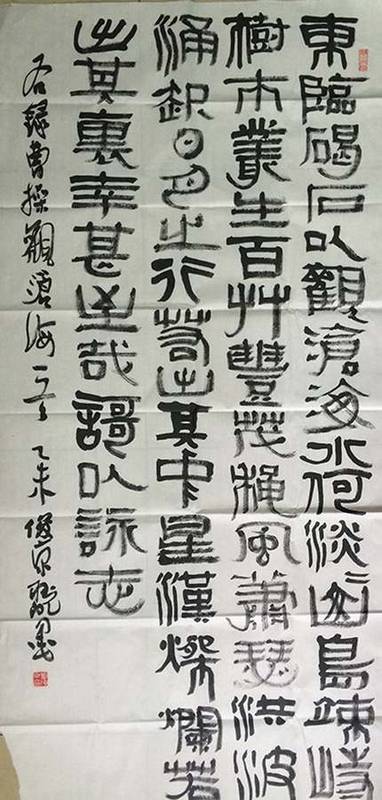 東臨碣石以觀滄海水何淡山島竦峙
樹木叢生百艸豐茂穐風蕭瑟洪波
涌起日月之行若出其中星漢燦爛若
出其裏幸甚至哉謌以詠志
右錄曹操觀滄海一首乙未